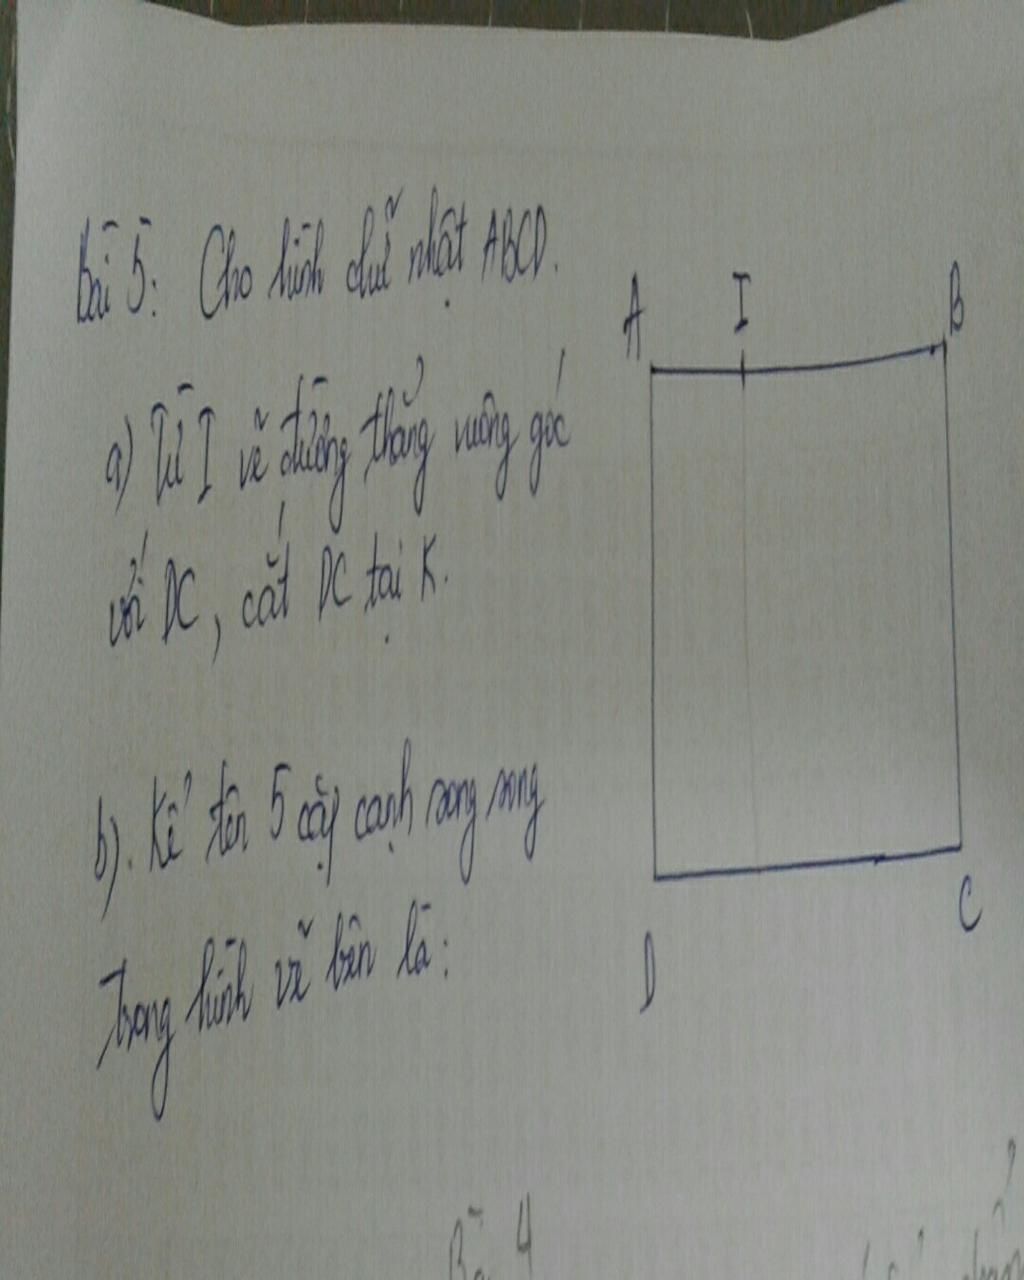 Bài 5: Cho hình chữ nhật ABCD.
A I B
a) Từ I vẽ đường thẳng vuông góc
với DC, cắt DC tại K.
b). Kể tên 5 cặp cạnh song song
C
trong hình vẽ bên là:
D
4